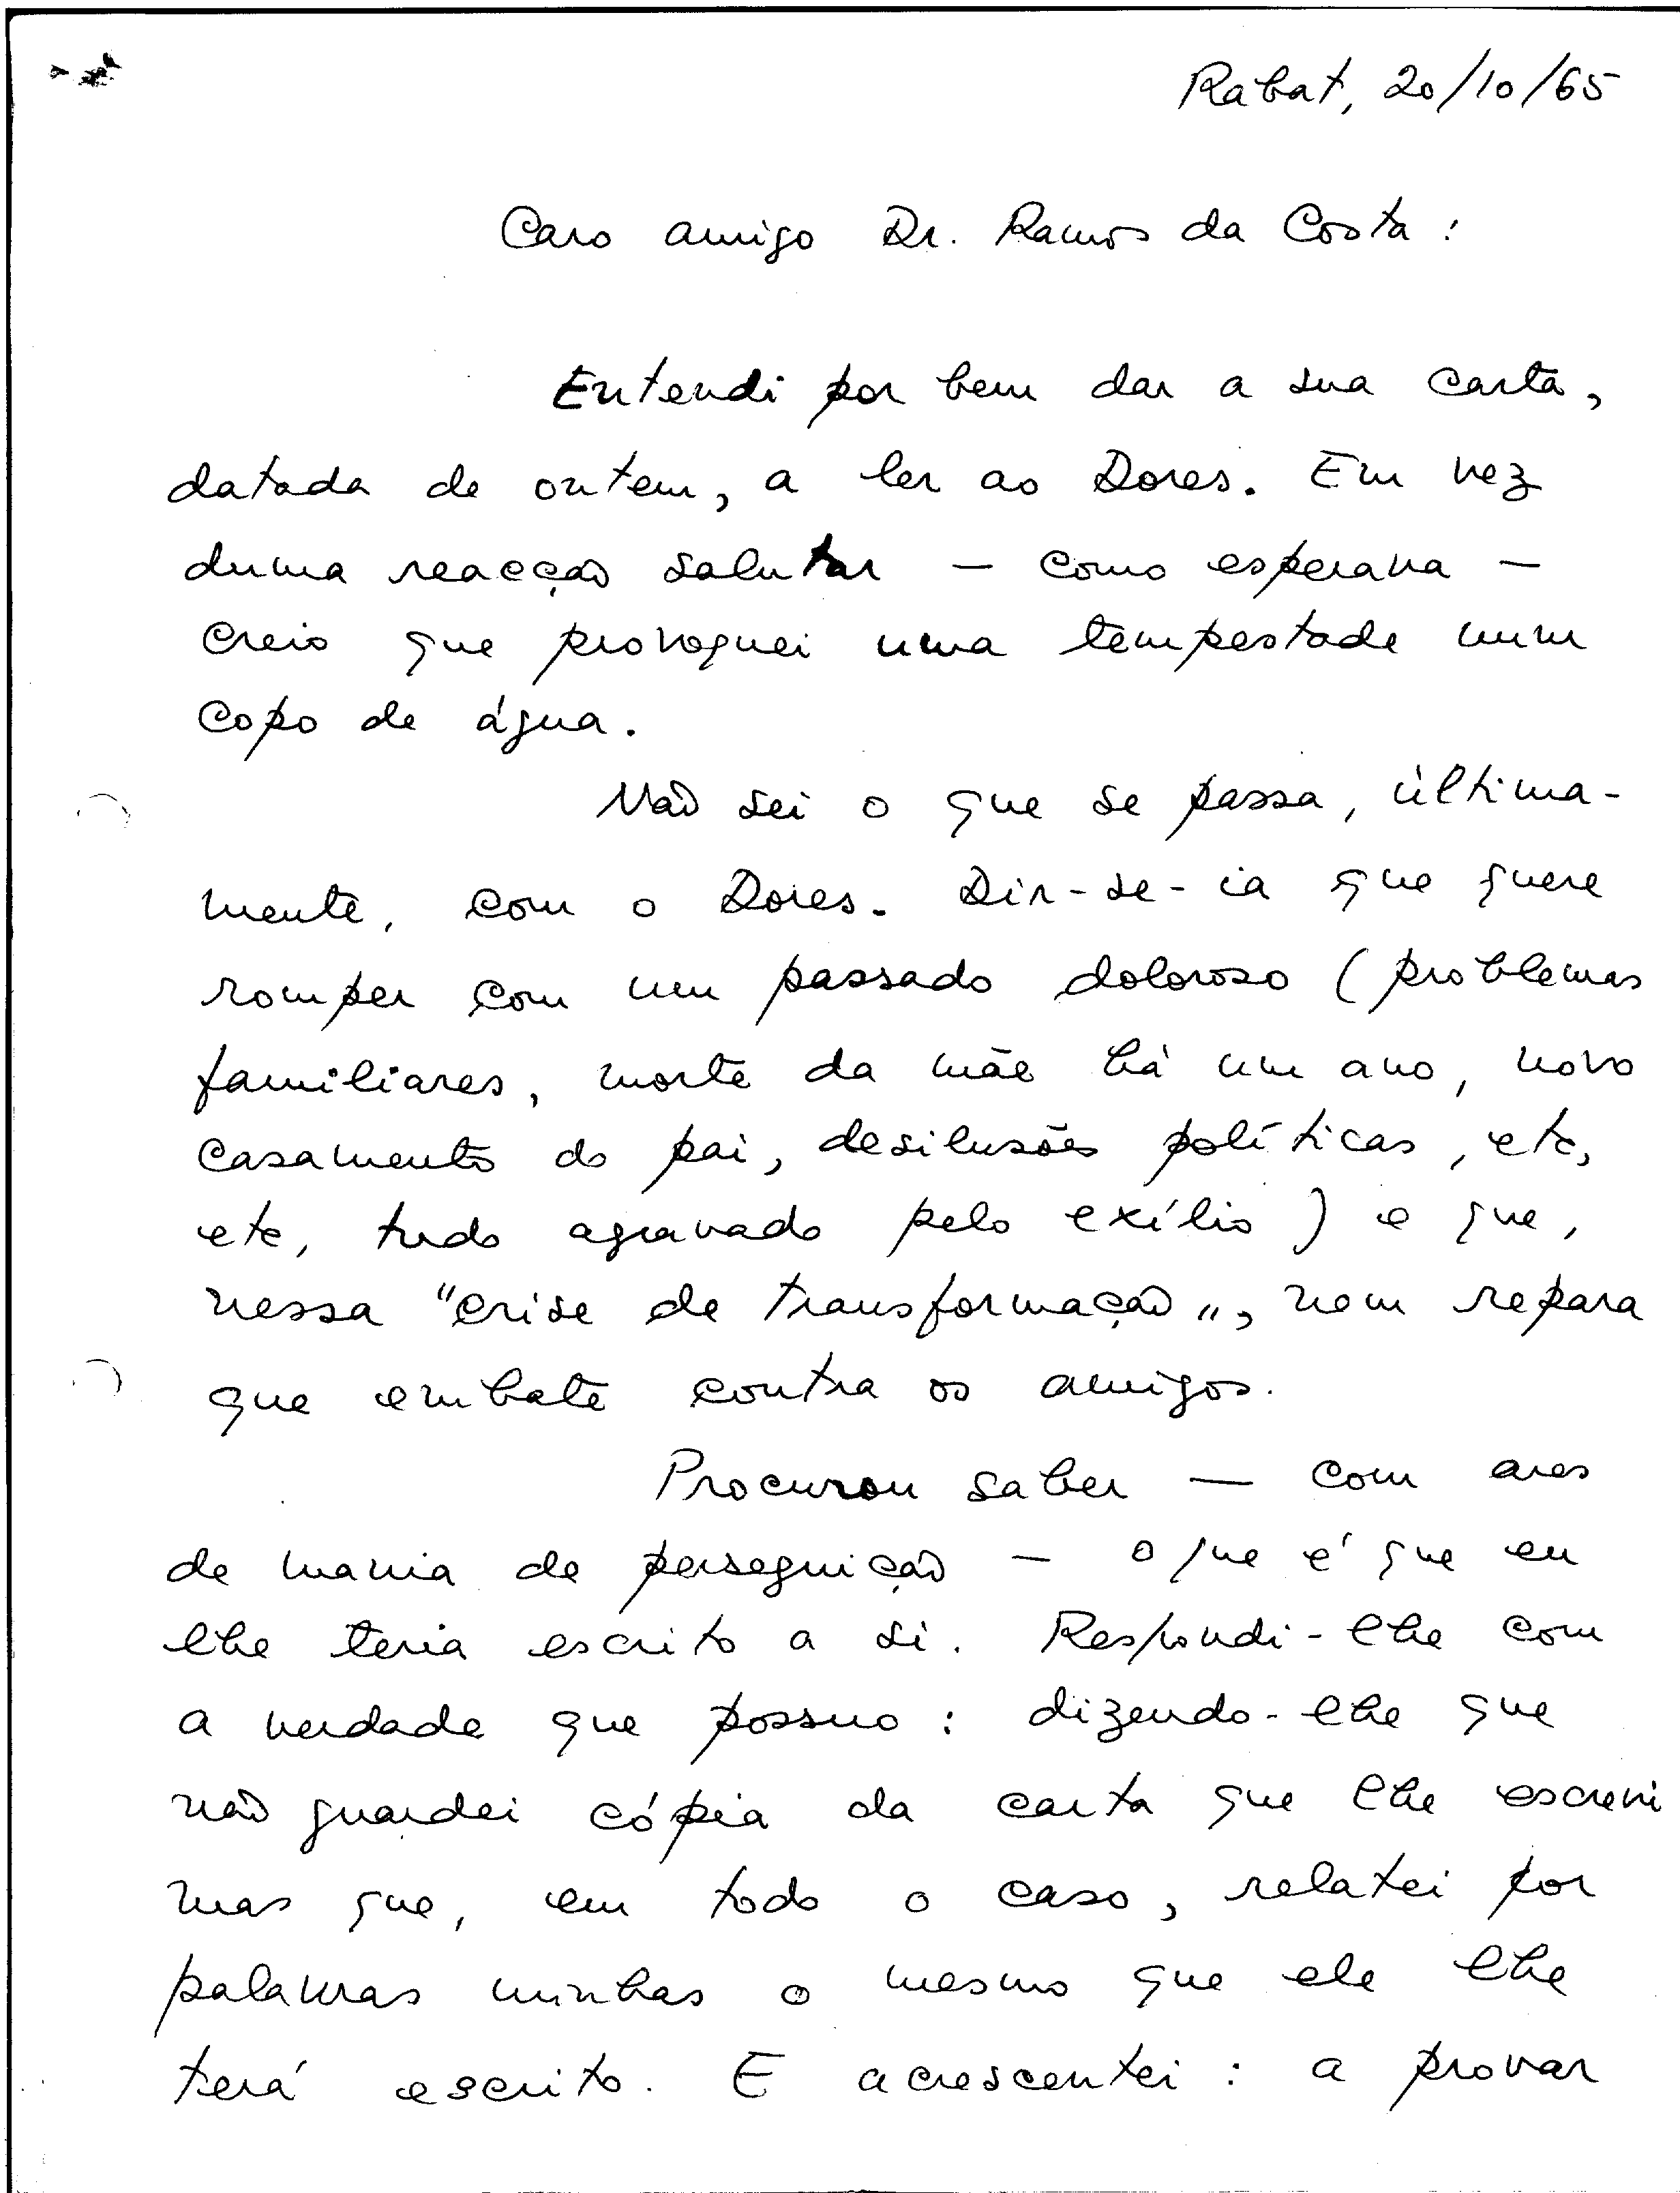 Rabat, 20/10/65
Caro amigo Dr. Ramos da Costa :
Entendi por bem dar a sua carta,
datada de ontem, a ler ao Dores. Em vez
duma reacção salutar — como esperava —
creio que provoquei uma tempestade num
copo de água.
Não sei o que se passa, ùltima-
mente, com o Dores. Dir-se-ia que quere
romper com um passado doloroso (problemas
familiares, morte da mãe há um ano, novo
casamento do pai, desilusões políticas, etc,
etc, tudo agravado pelo exílio) e que,
nessa "crise de transformação", nem repara
que embate contra os amigos.
Procurou saber — com ares
de mania de perseguição — o que é que eu
lhe teria escrito a si. Respondi-lhe com
a verdade que possuo : dizendo-lhe que
não guardei cópia da carta que lhe escrevi
mas que, em todo o caso, relatei por
palavras minhas o mesmo que ele lhe
terá escrito. E acrescentei : a provar